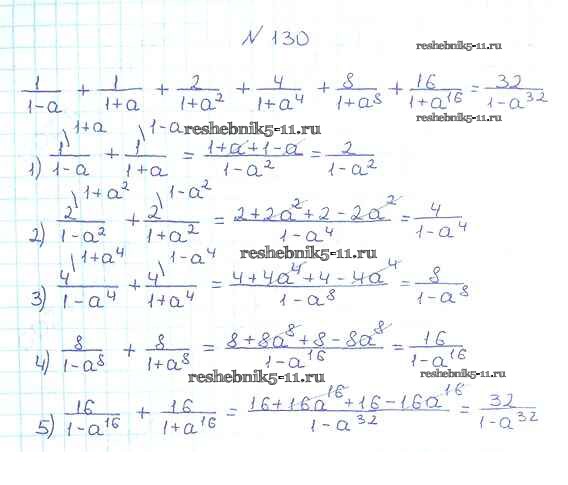 N 130
reshebnik5-11.ru
1/(1-a) + 1/(1+a) + 2/(1+a²) + 4/(1+a⁴) + 8/(1+a⁸) + 16/(1+a¹⁶) = 32/(1-a³²)
reshebnik5-11.ru
1) 1\1+a/(1-a) + 1\1-a/(1+a) = (1+a+1-a)/(1-a²) = 2/(1-a²)
reshebnik5-11.ru
2) 2\1+a²/(1-a²) + 2\1-a²/(1+a²) = (2+2a²+2-2a²)/(1-a⁴) = 4/(1-a⁴)
reshebnik5-11.ru
3) 4\1+a⁴/(1-a⁴) + 4\1-a⁴/(1+a⁴) = (4+4a⁴+4-4a⁴)/(1-a⁸) = 8/(1-a⁸)
4) 8/(1-a⁸) + 8/(1+a⁸) = (8+8a⁸+8-8a⁸)/(1-a¹⁶) = 16/(1-a¹⁶)
reshebnik5-11.ru
reshebnik5-11.ru
5) 16/(1-a¹⁶) + 16/(1+a¹⁶) = (16+16a¹⁶+16-16a¹⁶)/(1-a³²) = 32/(1-a³²)